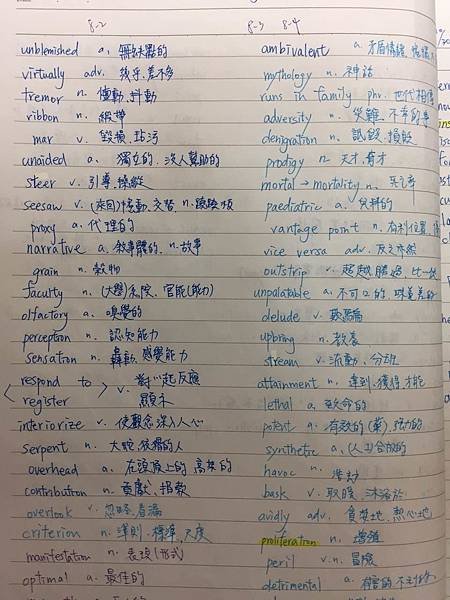 8-2
unblemished a. 無缺點的
virtually adv. 幾乎.差不多
tremor n. 震動.抖動
ribbon n. 緞帶
mar v. 毀損.玷污
unaided a. 獨立的.沒人幫助的
steer v. 引導.操縱
seesaw v. (來回)移動.交替 n.蹺蹺板
proxy a. 代理的
narrative a. 敘事體的. n.故事
grain n. 穀物
faculty n. (大學)系院. 官能(能力)
olfactory a. 嗅覺的
perception n. 認知能力
sensation n. 轟動.感覺能力
respond to v. 對~起反應
register 顯示
interiorize v. 使觀念深入人心
serpent n. 大蛇.狡猾的人
overhead a. 在頭頂上的.高架的
contribution n. 貢獻.捐款
overlook v. 忽略.看漏
criterion n. 準則.標準.尺度
manifestation n. 表現(形式)
optimal a. 最佳的
8-3 8-4
ambivalent a. 矛盾情緒.
mythology n. 神話
runs in family phr. 世代相傳
adversity n. 災難.不幸的事
denigration n. 詆毀.損毀
prodigy n. 天才.奇才
mortal → mortality n. 死亡率
paediatric a. 兒科的
vantage point n. 有利位置
vice versa adv. 反之亦然
outstrip v. 超越.勝過.比~
unpalatable a. 不可口的.味差的
delude v. 欺騙
upbring n. 教養
stream v. 流動.分班
attainment n. 達到.獲得.才能
lethal a. 致命的
potent n. 有效的(藥).強力的
synthetic a. (人工)合成的
havoc n. 浩劫
bask v. 取暖.沐浴於
avidly adv. 貪婪地.熱心地
proliferation n. 增殖
peril v.n. 冒險
detrimental a. 有害的.